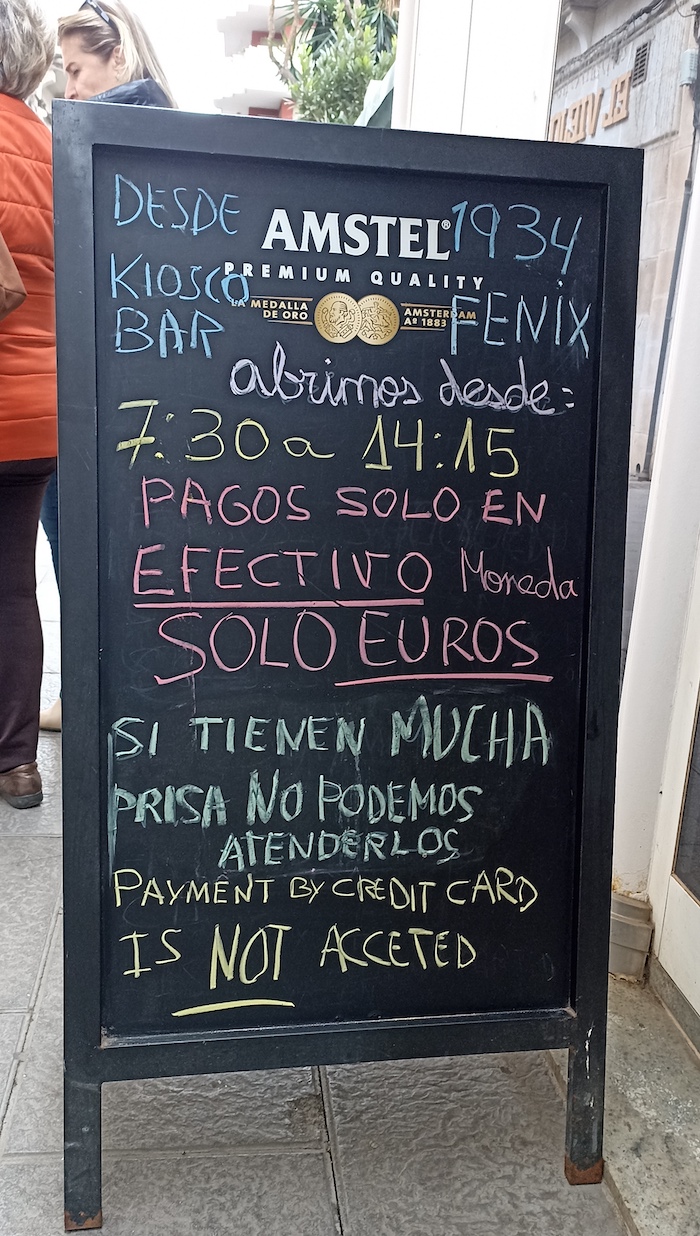 EL VIEJO
DESDE AMSTEL® 1934
PREMIUM QUALITY
KIOSCO
LA MEDALLA DE ORO
AMSTERDAM Aº 1883
BAR FENIX
abrimos desde:
7:30 a 14:15
PAGOS SOLO EN
EFECTIVO Moneda
SOLO EUROS
SI TIENEN MUCHA
PRISA NO PODEMOS
ATENDERLOS
PAYMENT BY CREDIT CARD
IS NOT ACCETED